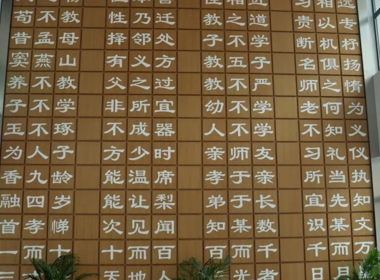 性相近 习相远
苟不教 性乃迁 教之道 贵以专
昔孟母 择邻处 子不学 断机杼
窦燕山 有义方 教五子 名俱扬
养不教 父之过 教不严 师之惰
子不学 非所宜 幼不学 老何为
玉不琢 不成器 人不学 不知义
为人子 方少时 亲师友 习礼仪
香九龄 能温席 孝于亲 所当执
融四岁 能让梨 弟于长 宜先知
首孝悌 次见闻 知某数 识某文
一而十 十而百 百而千 千而万